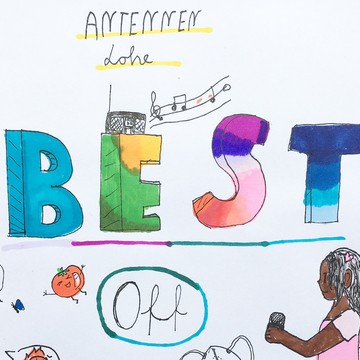 ANTENNEN
Lohe
BEST
Off